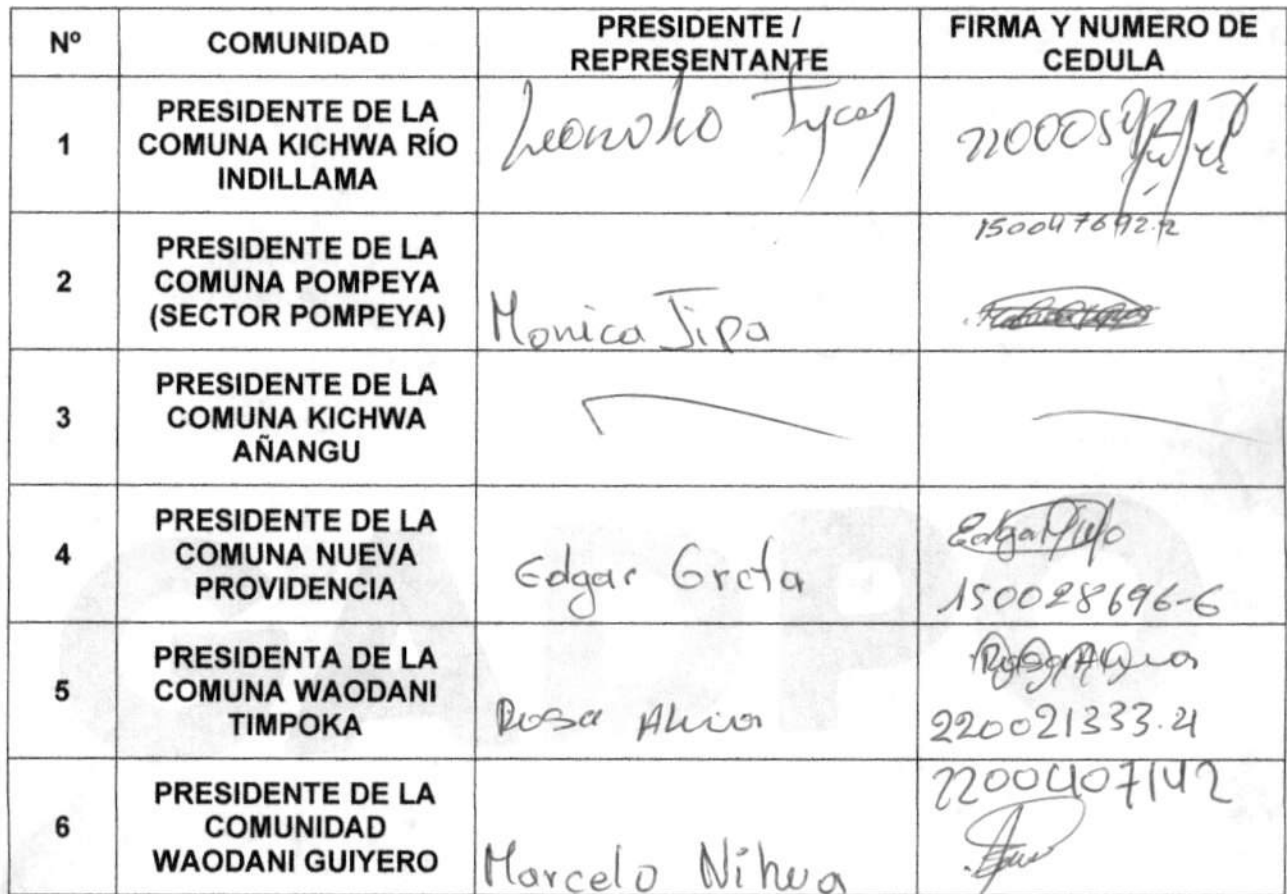 Nº COMUNIDAD PRESIDENTE / REPRESENTANTE FIRMA Y NUMERO DE CEDULA
1 PRESIDENTE DE LA COMUNA KICHWA RÍO INDILLAMA 
2 PRESIDENTE DE LA COMUNA POMPEYA (SECTOR POMPEYA) Monica Tipa 150047692-2
3 PRESIDENTE DE LA COMUNA KICHWA AÑANGU
4 PRESIDENTE DE LA COMUNA NUEVA PROVIDENCIA Edgar Grefa 150028696-6
5 PRESIDENTA DE LA COMUNA WAODANI TIMPOKA Rosa Ahua 220021333-4
6 PRESIDENTE DE LA COMUNIDAD WAODANI GUIYERO Marcelo Nihua 2200407142